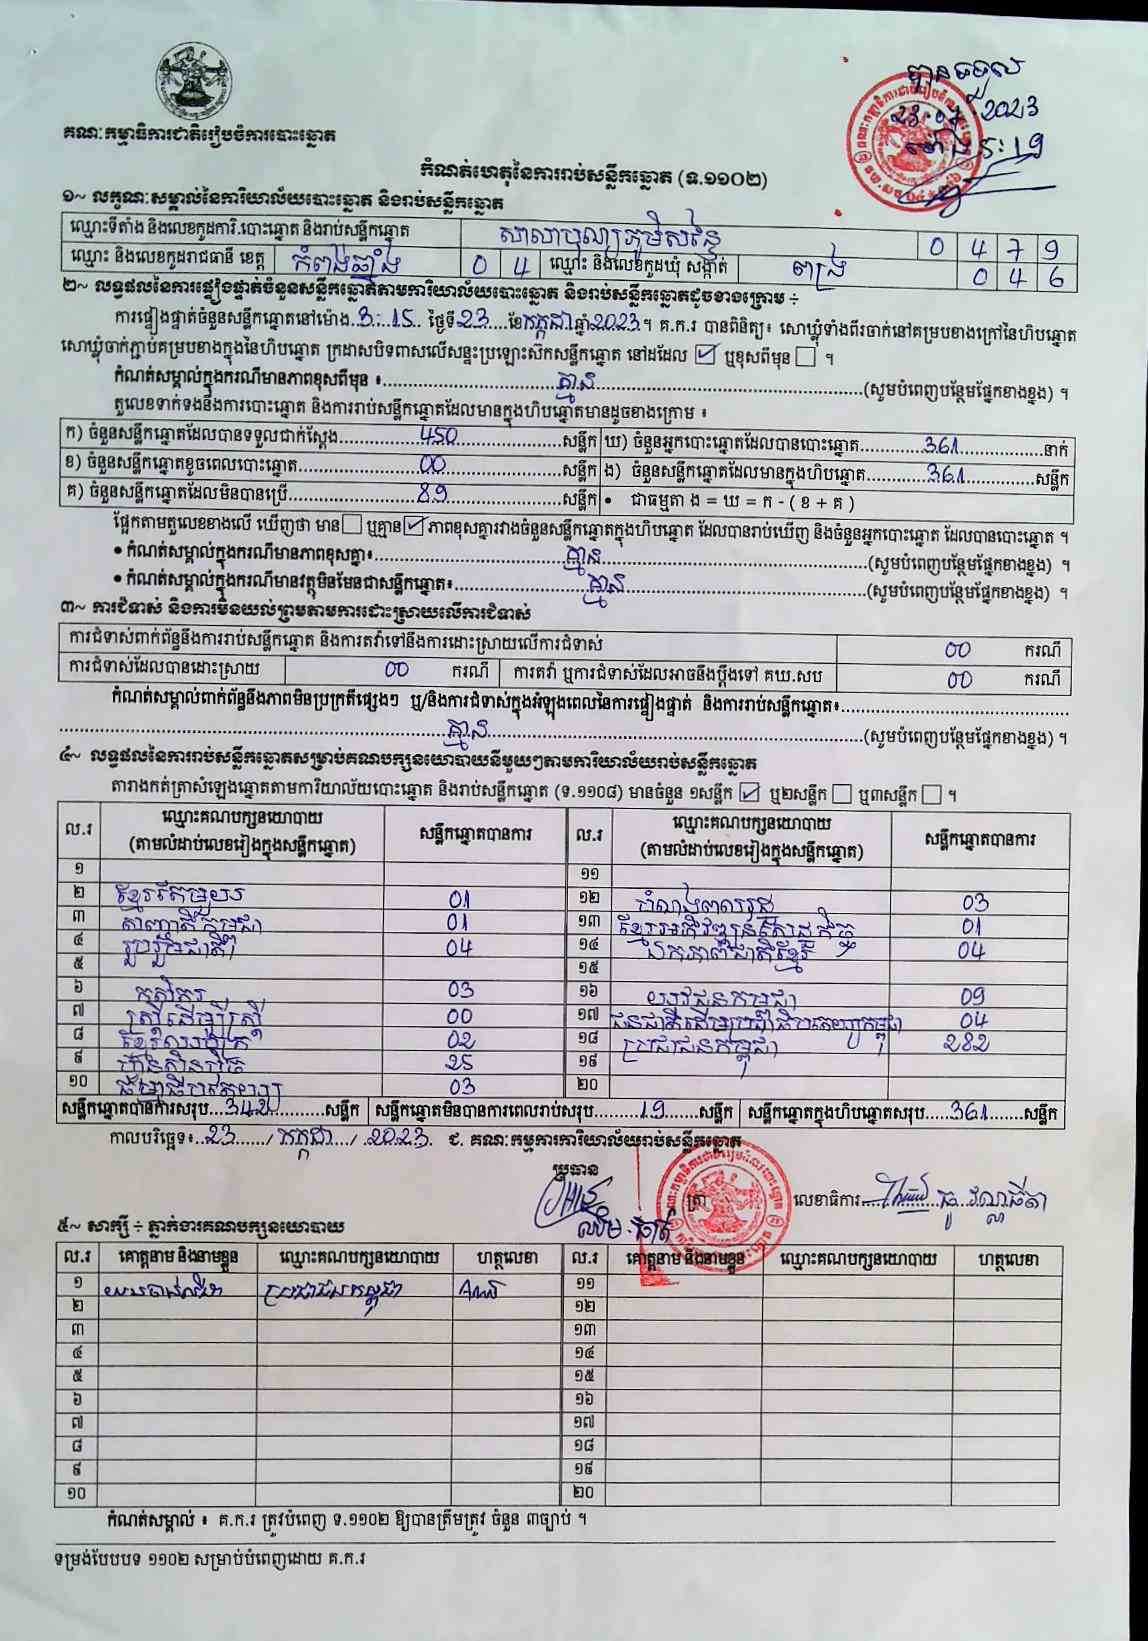 គណៈកម្មាធិការជាតិរៀបចំការបោះឆ្នោត
បានទទួល
23.07.2023
ម៉ោង 5:19
កំណត់ហេតុនៃការរាប់សន្លឹកឆ្នោត (ទ.១១០២)
១~ លក្ខណៈសម្គាល់នៃការិយាល័យបោះឆ្នោត និងរាប់សន្លឹកឆ្នោត
ឈ្មោះទីតាំង និងលេខកូដការិ.បោះឆ្នោត និងរាប់សន្លឹកឆ្នោត សាលាបុណ្យភូមិ 0 4 7 9
ឈ្មោះ និងលេខកូដរាជធានី ខេត្ត កំពង់ឆ្នាំង 0 4 ឈ្មោះ និងលេខកូដឃុំ សង្កាត់ ពង្រ 0 4 6
២~ លទ្ធផលនៃការផ្ទៀងផ្ទាត់ចំនួនសន្លឹកឆ្នោតតាមការិយាល័យបោះឆ្នោត និងរាប់សន្លឹកឆ្នោតដូចខាងក្រោម ÷
ការផ្ទៀងផ្ទាត់ចំនួនសន្លឹកឆ្នោតនៅម៉ោង..3:15.. ថ្ងៃទី23....ខែកក្កដាឆ្នាំ2023។ គ.ក.រ បានពិនិត្យ៖ សោឃ្លុំទាំងពីរចាក់នៅគម្របខាងក្រៅនៃហិបឆ្នោត
សោឃ្លុំចាក់ភ្ជាប់គម្របខាងក្នុងនៃហិបឆ្នោត ក្រដាសបិទពាសលើសន្ទះប្រឡោះស៊កសន្លឹកឆ្នោត នៅដដែល ☑ ឬខុសពីមុន ☐ ។
កំណត់សម្គាល់ក្នុងករណីមានភាពខុសពីមុន ៖........គ្មាន........(សូមបំពេញបន្ថែមផ្នែកខាងខ្នង) ។
តួលេខទាក់ទងនឹងការបោះឆ្នោត និងការរាប់សន្លឹកឆ្នោតដែលមានក្នុងហិបឆ្នោតមានដូចខាងក្រោម ៖
ក) ចំនួនសន្លឹកឆ្នោតដែលបានទទួលជាក់ស្តែង........450........សន្លឹក ឃ) ចំនួនអ្នកបោះឆ្នោតដែលបានបោះឆ្នោត........361........នាក់
ខ) ចំនួនសន្លឹកឆ្នោតខូចពេលបោះឆ្នោត........00........សន្លឹក ង) ចំនួនសន្លឹកឆ្នោតដែលមានក្នុងហិបឆ្នោត........361........សន្លឹក
គ) ចំនួនសន្លឹកឆ្នោតដែលមិនបានប្រើ........89........សន្លឹក • ជាធម្មតា ង = ឃ = ក - ( ខ + គ )
ផ្អែកតាមតួលេខខាងលើ ឃើញថា មាន ☐ ឬគ្មាន ☑ ភាពខុសគ្នារវាងចំនួនសន្លឹកឆ្នោតក្នុងហិបឆ្នោត ដែលបានរាប់ឃើញ និងចំនួនអ្នកបោះឆ្នោត ដែលបានបោះឆ្នោត ។
• កំណត់សម្គាល់ក្នុងករណីមានភាពខុសគ្នា៖........គ្មាន........(សូមបំពេញបន្ថែមផ្នែកខាងខ្នង) ។
• កំណត់សម្គាល់ក្នុងករណីមានវត្ថុមិនមែនជាសន្លឹកឆ្នោត៖........គ្មាន........(សូមបំពេញបន្ថែមផ្នែកខាងខ្នង) ។
៣~ ការជំទាស់ និងការមិនយល់ព្រមតាមការដោះស្រាយលើការជំទាស់
ការជំទាស់ពាក់ព័ន្ធនឹងការរាប់សន្លឹកឆ្នោត និងការតវ៉ាទៅនឹងការដោះស្រាយលើការជំទាស់ 00 ករណី
ការជំទាស់ដែលបានដោះស្រាយ 00 ករណី ការតវ៉ា ឬការជំទាស់ដែលអាចនឹងប្តឹងទៅ គឃ.សប 00 ករណី
កំណត់សម្គាល់ពាក់ព័ន្ធនឹងភាពមិនប្រក្រតីផ្សេងៗ ឬ/និងការជំទាស់ក្នុងអំឡុងពេលនៃការផ្ទៀងផ្ទាត់ និងការរាប់សន្លឹកឆ្នោត៖........
........គ្មាន........(សូមបំពេញបន្ថែមផ្នែកខាងខ្នង) ។
៤~ លទ្ធផលនៃការរាប់សន្លឹកឆ្នោតសម្រាប់គណបក្សនយោបាយនីមួយៗតាមការិយាល័យរាប់សន្លឹកឆ្នោត
តារាងកត់ត្រាសំឡេងឆ្នោតតាមការិយាល័យបោះឆ្នោត និងរាប់សន្លឹកឆ្នោត (ទ.១១០៨) មានចំនួន ១សន្លឹក ☑ ឬ២សន្លឹក ☐ ឬ៣សន្លឹក ☐ ។
ល.រ ឈ្មោះគណបក្សនយោបាយ (តាមលំដាប់លេខរៀងក្នុងសន្លឹកឆ្នោត) សន្លឹកឆ្នោតបានការ ល.រ ឈ្មោះគណបក្សនយោបាយ (តាមលំដាប់លេខរៀងក្នុងសន្លឹកឆ្នោត) សន្លឹកឆ្នោតបានការ
១ ១១
២ ខ្មែរតែមួយ 01 ១២ កំលាំងពលរដ្ឋ 03
៣ សញ្ជាតិកម្ពុជា 01 ១៣ ខ្មែរអភិវឌ្ឍន៍សេដ្ឋកិច្ច 01
៤ រួបរួមជាតិ 04 ១៤ ឯកភាពជាតិខ្មែរ 04
៥ ១៥
៦ កសិករ 03 ១៦ យុវជនកម្ពុជា 09
៧ ស្ត្រីដើម្បីស្ត្រី 00 ១៧ ជនជាតិដើមប្រជាធិបតេយ្យកម្ពុជា 04
៨ ខ្មែរឈប់ក្រ 02 ១៨ ប្រជាជនកម្ពុជា 282
៩ ហ៊្វុនស៊ិនប៉ិច 25 ១៩
១០ ធម្មាធិបតេយ្យ 03 ២០
សន្លឹកឆ្នោតបានការសរុប...342...សន្លឹក សន្លឹកឆ្នោតមិនបានការពេលរាប់សរុប...19...សន្លឹក សន្លឹកឆ្នោតក្នុងហិបឆ្នោតសរុប...361...សន្លឹក
កាលបរិច្ឆេទ៖..23../កក្កដា../2023. ជ. គណៈកម្មការការិយាល័យរាប់សន្លឹកឆ្នោត
ប្រធាន ត្រា លេខាធិការ
៥~ សាក្សី ÷ ភ្នាក់ងារគណបក្សនយោបាយ
ល.រ គោត្តនាម និងនាមខ្លួន ឈ្មោះគណបក្សនយោបាយ ហត្ថលេខា ល.រ គោត្តនាម និងនាមខ្លួន ឈ្មោះគណបក្សនយោបាយ ហត្ថលេខា
១ ប្រជាជនកម្ពុជា ១១
២ ១២
៣ ១៣
៤ ១៤
៥ ១៥
៦ ១៦
៧ ១៧
៨ ១៨
៩ ១៩
១០ ២០
កំណត់សម្គាល់ ៖ គ.ក.រ ត្រូវបំពេញ ទ.១១០២ ឱ្យបានត្រឹមត្រូវ ចំនួន ៣ច្បាប់ ។
ទម្រង់បែបបទ ១១០២ សម្រាប់បំពេញដោយ គ.ក.រ